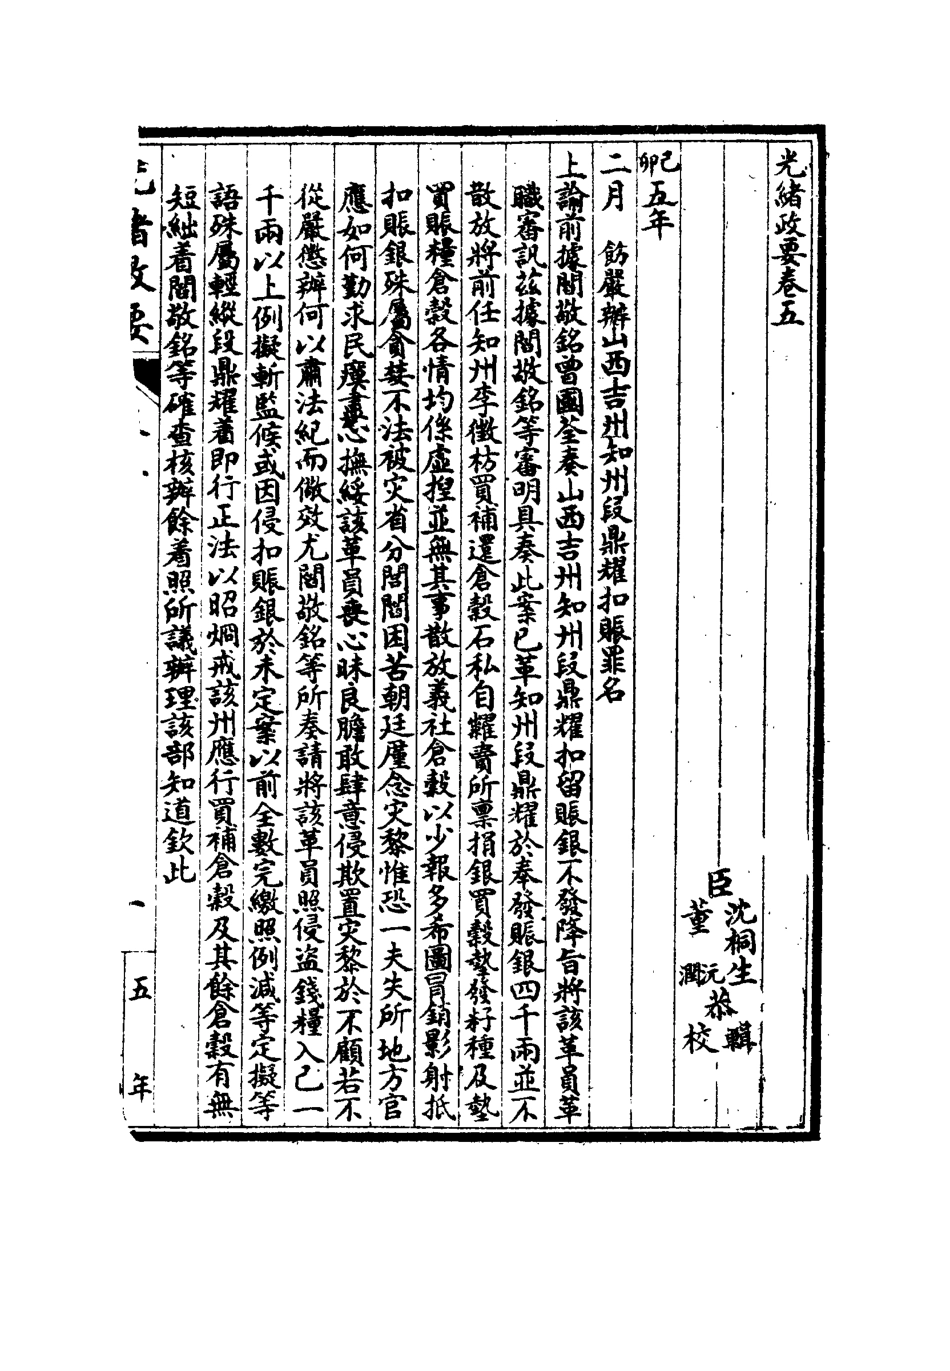 光緒政要卷五
臣 沈桐生 董沅潤 恭 輯 校
己卯五年
二月　飭嚴辦山西吉州知州段鼎耀扣賑罪名
上諭前據閻敬銘曾國荃奏山西吉州知州段鼎耀扣留賑銀不發降旨將該革員革
職審訊茲據閻敬銘等審明具奏此案已革知州段鼎耀於奉發賑銀四千兩並不
散放將前任知州李徵枋買補還倉穀石私自糶賣所稟捐銀買穀墊發籽種及墊
買賑糧倉穀各情均係虛捏並無其事散放義社倉穀以少報多希圖冒銷影射抵
扣賑銀殊屬貪婪不法被灾省分閭閻困苦朝廷厪念灾黎惟恐一夫失所地方官
應如何勤求民瘼盡心撫綏該革員喪心昧良膽敢肆意侵欺置灾黎於不顧若不
從嚴懲辦何以肅法紀而儆效尤閻敬銘等所奏請將該革員照侵盜錢糧入己一
千兩以上例擬斬監候或因侵扣賑銀於未定案以前全數完繳照例減等定擬等
語殊屬輕縱段鼎耀著即行正法以昭炯戒該州應行買補倉穀及其餘倉穀有無
短絀着閻敬銘等確查核辦餘着照所議辦理該部知道欽此
光緒政要
一
五年